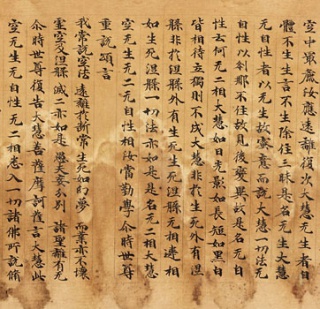 空中最麁汝應遠離復次大慧无生者自
體不生生言不生除住三昧是名无生大慧
无自性者以无生故密意而說大慧一切法无
自性以剎那不住故見後變異故是名无自
性云何无二相大慧如光影如長短如黑白
皆相待立獨則不成大慧非於生死外有涅
槃非於涅槃外有生死生死涅槃无相違相
如生死涅槃一切法亦如是是名无二相大慧
空无生无自性无二相汝當勤學尒時世尊
重說頌言
我常說空法 遠離於斷常 生死如幻夢 而業亦不壞
虛空及涅槃 滅二亦如是 愚夫妄分別 諸聖離有无
尒時世尊復告大慧菩薩摩訶薩言大慧此
空无生无自性无二相悉入一切諸佛所說脩